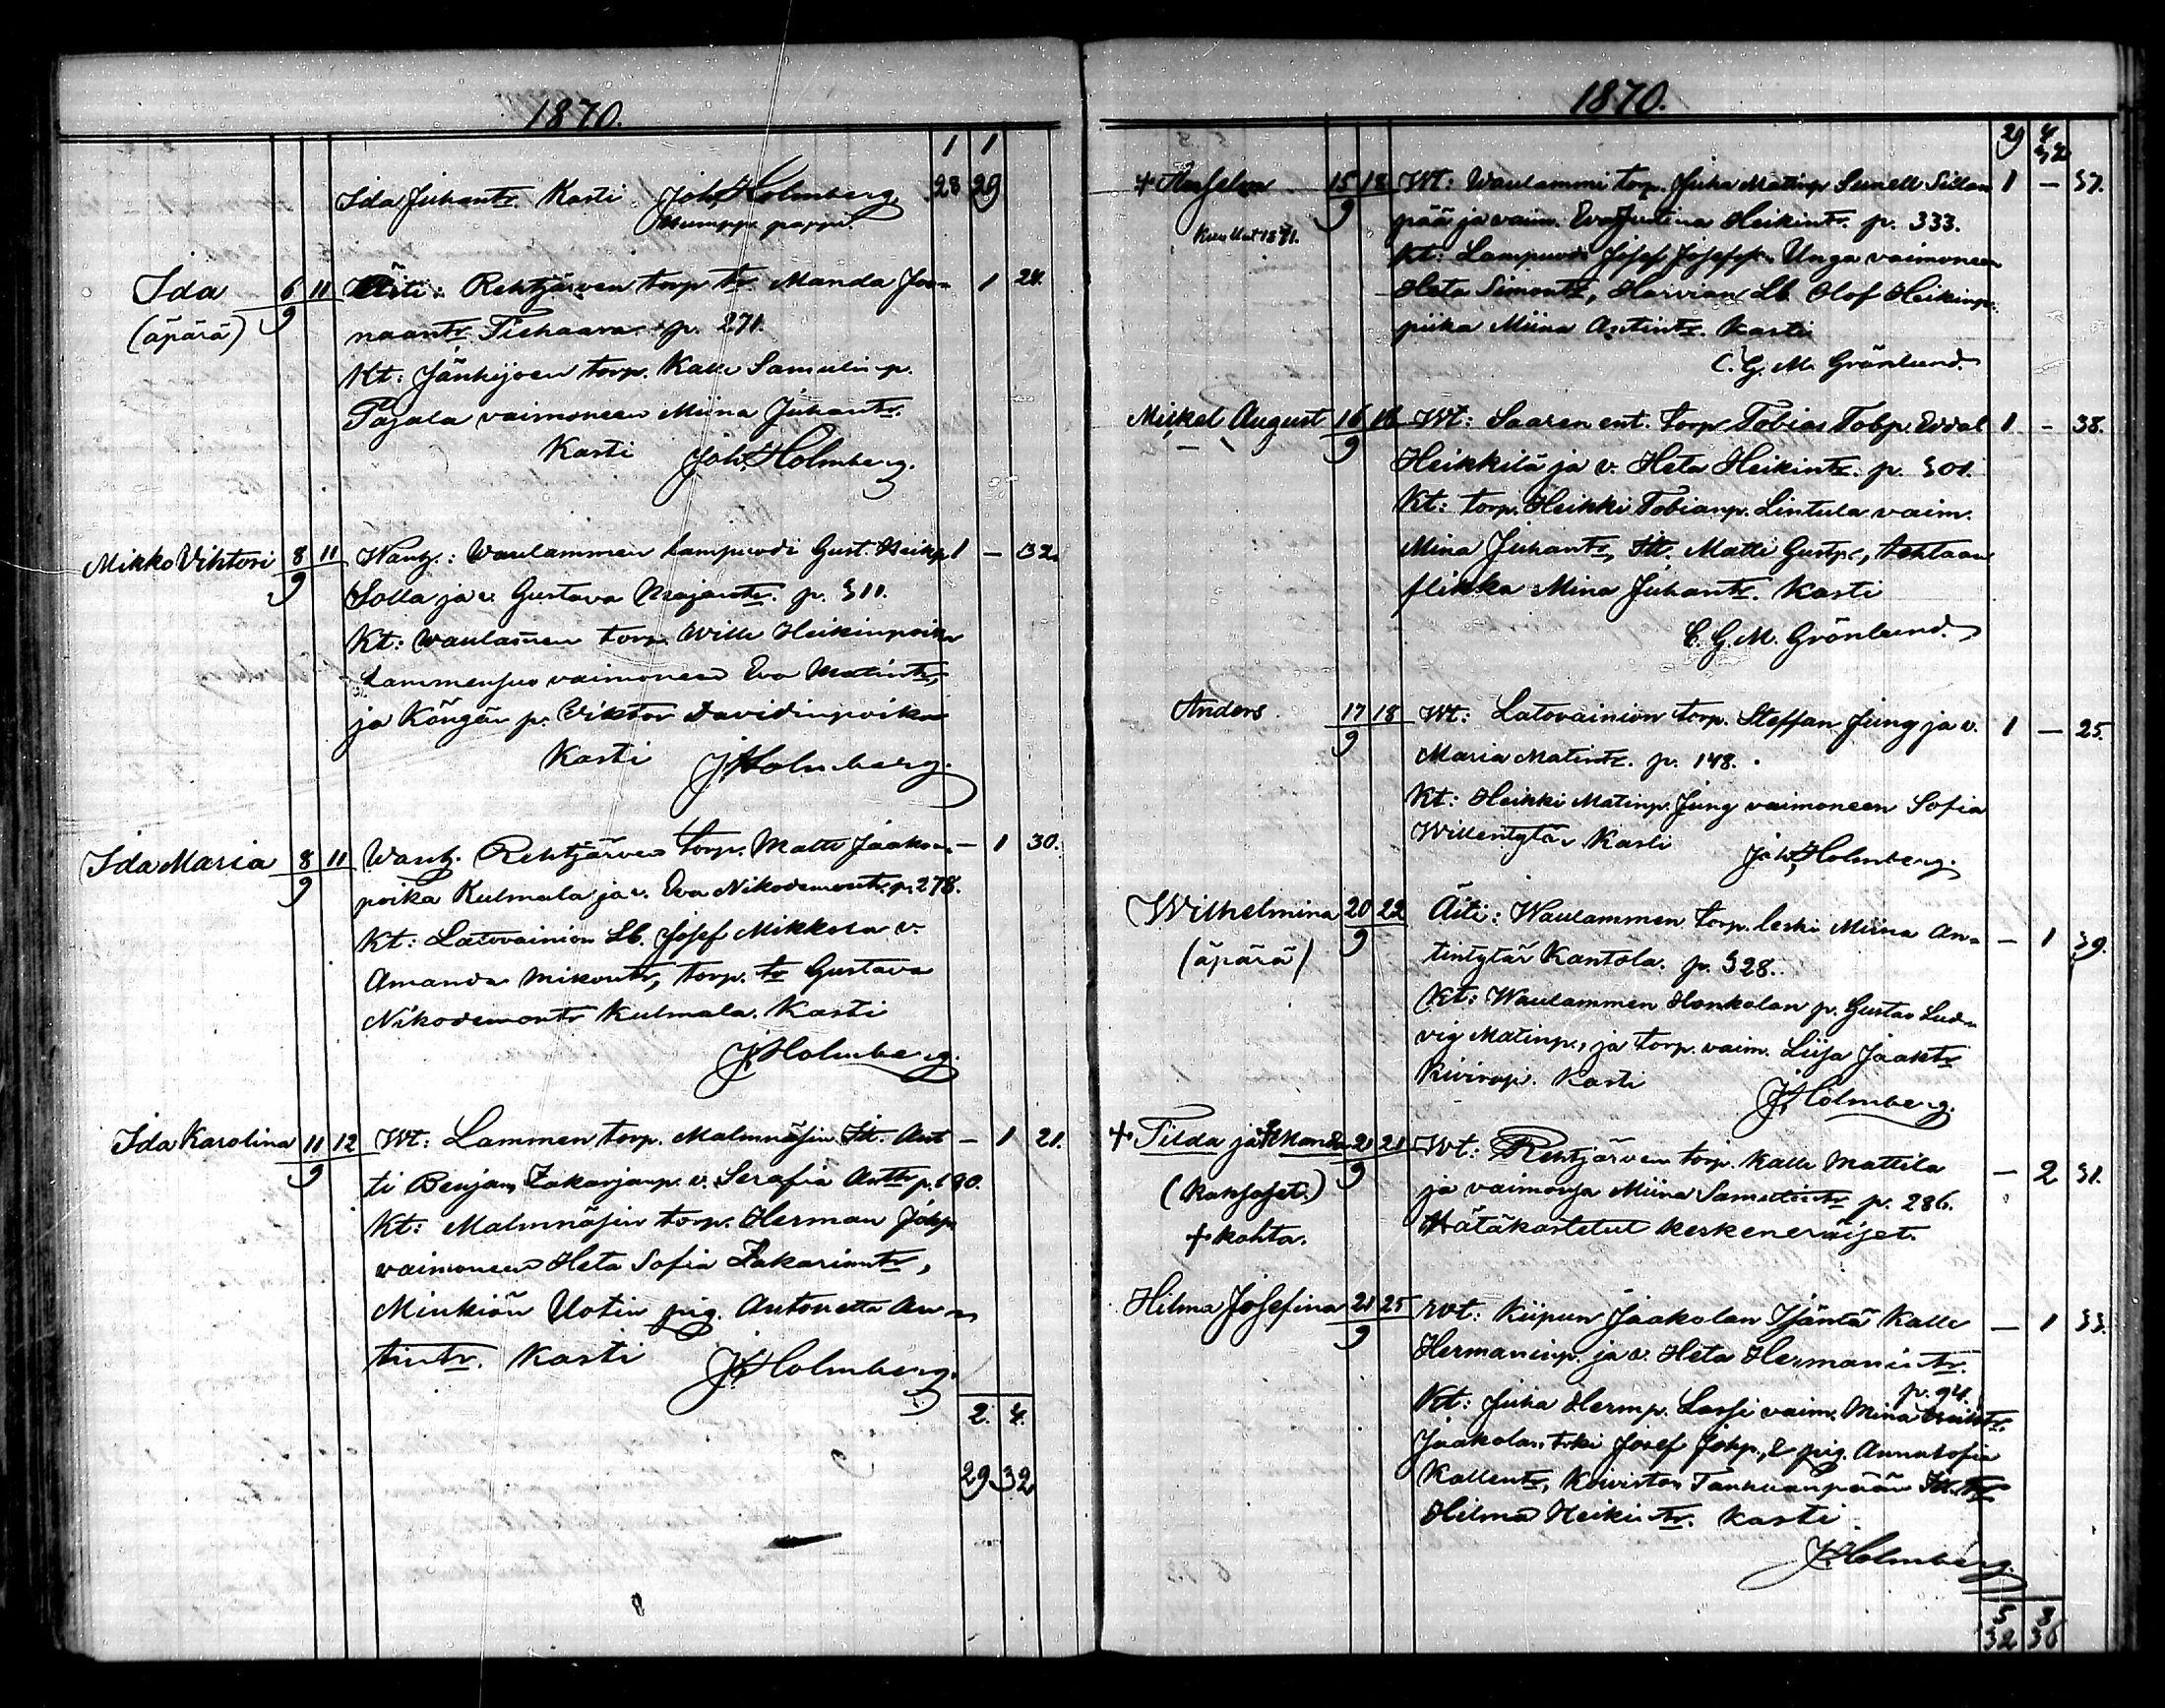 1870.
1 1
Ida Juhantr. Kasti Joh. Holmberg. 28 29
pappi.
Ida 6/9 11 Äiti: Rehtjärven torp. tr. Manda Joo= 1 24.
(äpärä) naantr. p. 271.
Kt: Jänhijoen torp. Kalle Samulinp.
Pajala vaimoneen Miina Juhantr.
Kasti Joh. Holmberg.
Mikko Vihtori 8/9 11 Wanh.: Waulammen lampuodi Gust. Heikp. 1 – 32.
Solla ja v. Gustava tr. p. 311.
Kt: Waulamen torp. Wille Heikinpoika
vaimoneen Eva Matintr,
ja p. Viktor Davidinpoika
Kasti J. Holmberg.
Ida Maria 8/9 11 Wanh. Rehtjärven torp. Matti Jaakon= – 1 30.
poika Kulmala ja v. Eva Nikodemontr. p. 278.
Kt: Latovainion Lb. Josef Mikkola v.
Amanda Mikontr, torp. tr Gustava
Nikodemontr Kulmala. Kasti
J. Holmberg.
Ida Karolina 11/9 12 Wt: Lammen torp. Malmnäsin It. Ant – 1 21.
ti Benjam. Zakarjanp. v. Serafia Anttr p. 190.
Kt: Malmnäsin torp. Herman Johp.
vaimoneen Heta Sofia Zakariantr,
Minkiön Uotin pig. Antonetta An=
tintr. Kasti J. Holmberg.
2. 4.
29 32
1870.
29 4
32
+ Anselm 15/9 18 Wt: Waulammi torp. Juha Matinp. Sunell Sillan 1 – 37.
pää ja vaim. Eva Justina Heikintr. p. 333.
Kuollut 1871.
Kt: Lampuodi Josef Josefsp. Unga vaimoneen
Heta Simontr, Harvian Lb. Olof Heikinp.
piika Miina Antintr. Kasti
C. G. M. Grönlund.
Mickel August 16/9 18 Wt: Saaren ent. torp. Tobias Tobp. 1 – 38.
Heikkilä ja v. Heta Heikintr. p. 301.
Kt: torp. Heikki Tobianp. Lintula vaim.
Mina Juhantr, It. Matti Gustp., tehtaan
flikka Mina Juhantr. Kasti
C. G. M. Grönlund.
Anders. 17/9 18 Wt: Latovainion torp. Steffan Jung ja v. 1 – 25.
Maria Matintr. p. 148.
Kt: Heikki Matinp. Jung vaimoneen Sofia
Willentytär Kasti Joh. Holmberg.
Wilhelmina 20/9 22 Äiti: Waulammen torp. leski Miina An= – 1 39.
(äpärä) tintytär Kantola. p. 328.
Kt: Waulammen Honkolan p. Gustav Lud=
vig Matinp., ja torp. vaim. Liisa Jaaktr
Kasti J. Holmberg.
+ Tilda ja + Manda 21/9 21 Wt: Rehtjärven torp. Kalle Mattila – 2 31.
(Kaksoset.) ja vaimonsa Miina Samulintr p. 286.
+ kohta. Hätäkastetut keskeneräiset.
Hilma Josefina 21/9 25 Wt: Kiipun Jaakolan Isäntä Kalle – 1 33.
Hermaninp. ja v. Heta Hermanintr.
p. 94.
Kt: Juha Hermp. Lassi vaim. Mina
Jaakolan trki Josef Johp., & pig. Anna Sofia
Kallentr, Koiviston Tanhuanpään It. tr
Hilma Heikintr. Kasti
J. Holmberg.
5 8
32 36